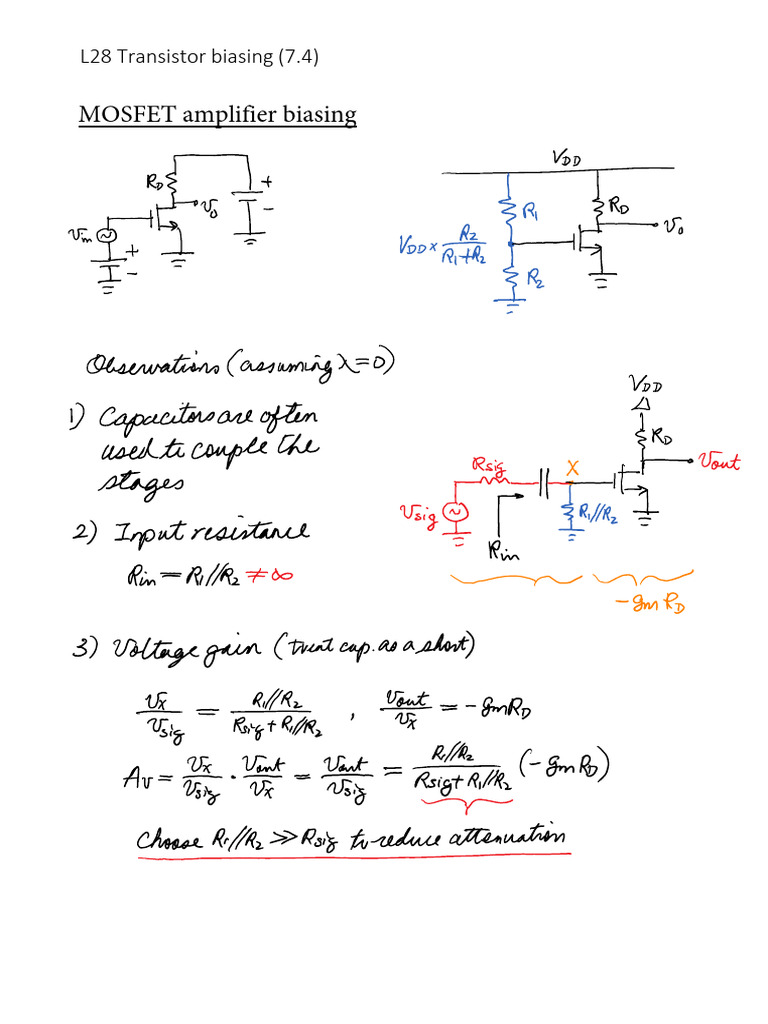 L28 Transistor biasing (7.4)
MOSFET amplifier biasing
RD
+
-
Vo
Vin
+
-
VDD
R1
RD
Vo
VDD × R2 / (R1+R2)
R2
Observations (assuming λ=0)
1) Capacitors are often
used to couple the
stages
VDD
RD
Vout
Rsig
X
Vsig
R1//R2
Rin
-gmRD
2) Input resistance
Rin = R1//R2 ≠ ∞
3) Voltage gain (treat cap. as a short)
Vx/Vsig = R1//R2 / (Rsig + R1//R2) , Vout/Vx = -gmRD
Av = Vx/Vsig · Vout/Vx = Vout/Vsig = R1//R2 / (Rsig + R1//R2) (-gmRD)
Choose R1//R2 >> Rsig to reduce attenuation